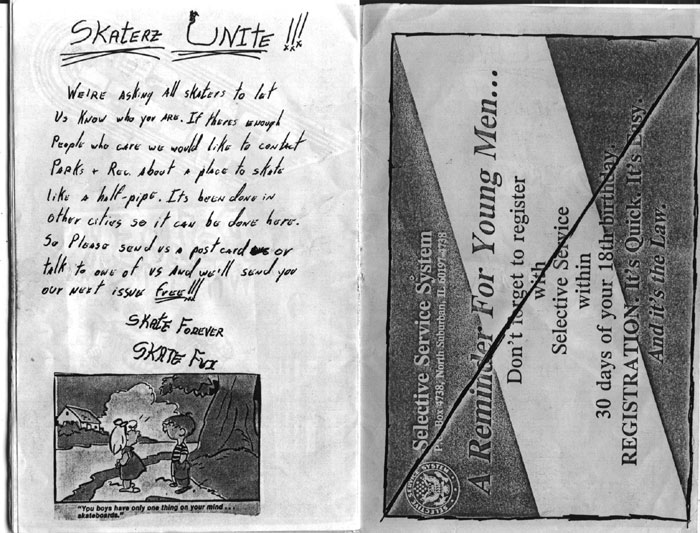 SKATERZ UNITE!!!
WE'RE ASKING ALL SKATERS TO LET
US KNOW WHO YOU ARE. IF THERES ENOUGH
PEOPLE WHO CARE WE WOULD LIKE TO CONTACT
PARKS + REC. ABOUT A PLACE TO SKATE
LIKE A HALF-PIPE. ITS BEEN DONE IN
OTHER CITIES SO IT CAN BE DONE HERE.
SO PLEASE SEND US A POSTCARD OR
TALK TO ONE OF US AND WE'LL SEND YOU
OUR NEXT ISSUE FREE!!!
SKATE FOREVER
SKATE
"You boys have only one thing on your mind . . .
skateboards."
Selective Service System
Box 4738, North Suburban, IL 60197-4738
A Reminder For Young Men...
Don't forget to register
with
Selective Service
within
30 days of your 18th birthday.
REGISTRATION. It's Quick. It's Easy.
And it's the Law.